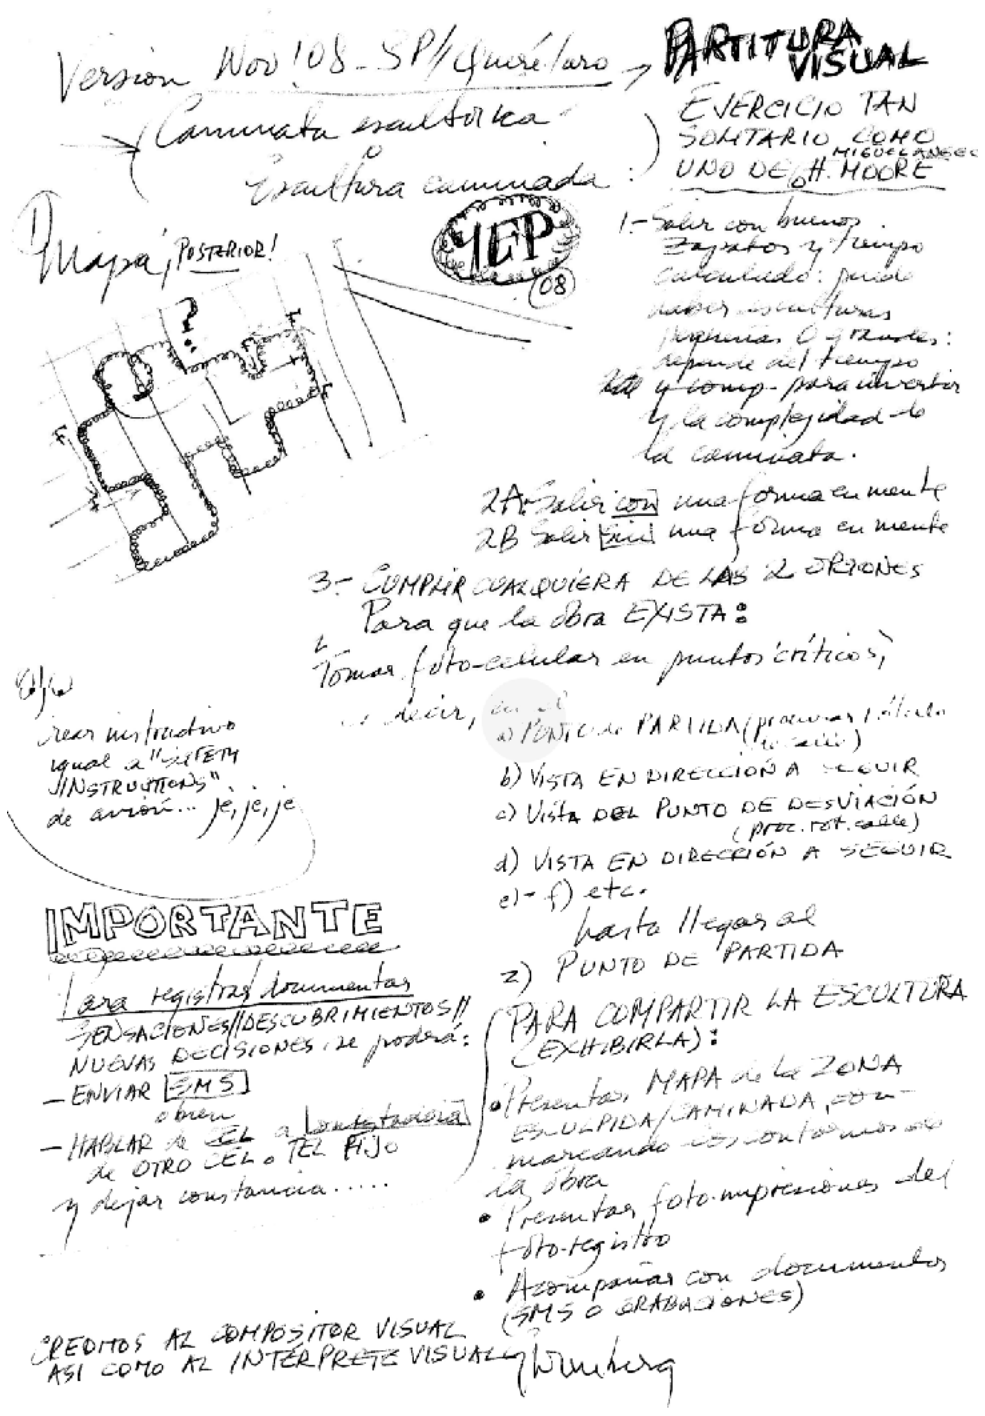 Version Nov '08 - SP//Querétaro →
PARTITURA
VISUAL
(Caminata escultórica
o
Escultura caminada :
EJERCICIO TAN
SOLITARIO COMO
UNO DE H. MOORE
o MIGUELANGEL
Mapa ¡POSTERIOR!
?
YEP
08
1- Salir con buenos
zapatos y tiempo
calculado: puede
haber esculturas
pequeñas O grandes:
depende del tiempo
y comp- para invertir
y la complejidad de
la caminata.
2A- Salir con una forma en mente
2B Salir sin una forma en mente
3- CUMPLIR CUALQUIERA DE LAS 2 OPCIONES
Para que la obra EXISTA:
Tomar foto-celular en puntos críticos,
es decir, en el
a) PUNTO de PARTIDA (procurar rótulo
de calle)
b) VISTA EN DIRECCIÓN A SEGUIR
c) VISTA DEL PUNTO DE DESVIACIÓN
(proc. rot. calle)
d) VISTA EN DIRECCIÓN A SEGUIR
e)- f) etc.
hasta llegar al
z) PUNTO DE PARTIDA
crear instructivo
igual a "SAFETY
INSTRUCTIONS"
de avión... je, je, je
IMPORTANTE
Para registrar documentar
SENSACIONES//DESCUBRIMIENTOS//
NUEVAS DECISIONES se podrá:
- ENVIAR SMS
o bien
- HABLAR de CEL a contestadora
de OTRO CEL o TEL FIJO
y dejar constancia.....
PARA COMPARTIR LA ESCULTURA
(EXHIBIRLA):
• Presentar MAPA de la ZONA
ESCULPIDA/CAMINADA, con-
marcando los contornos de
la obra
• Presentar foto-impresiones del
foto-registro
• Acompañar con documentos
(SMS O GRABACIONES)
CREDITOS AL COMPOSITOR VISUAL
ASI COMO AL INTÉRPRETE VISUAL